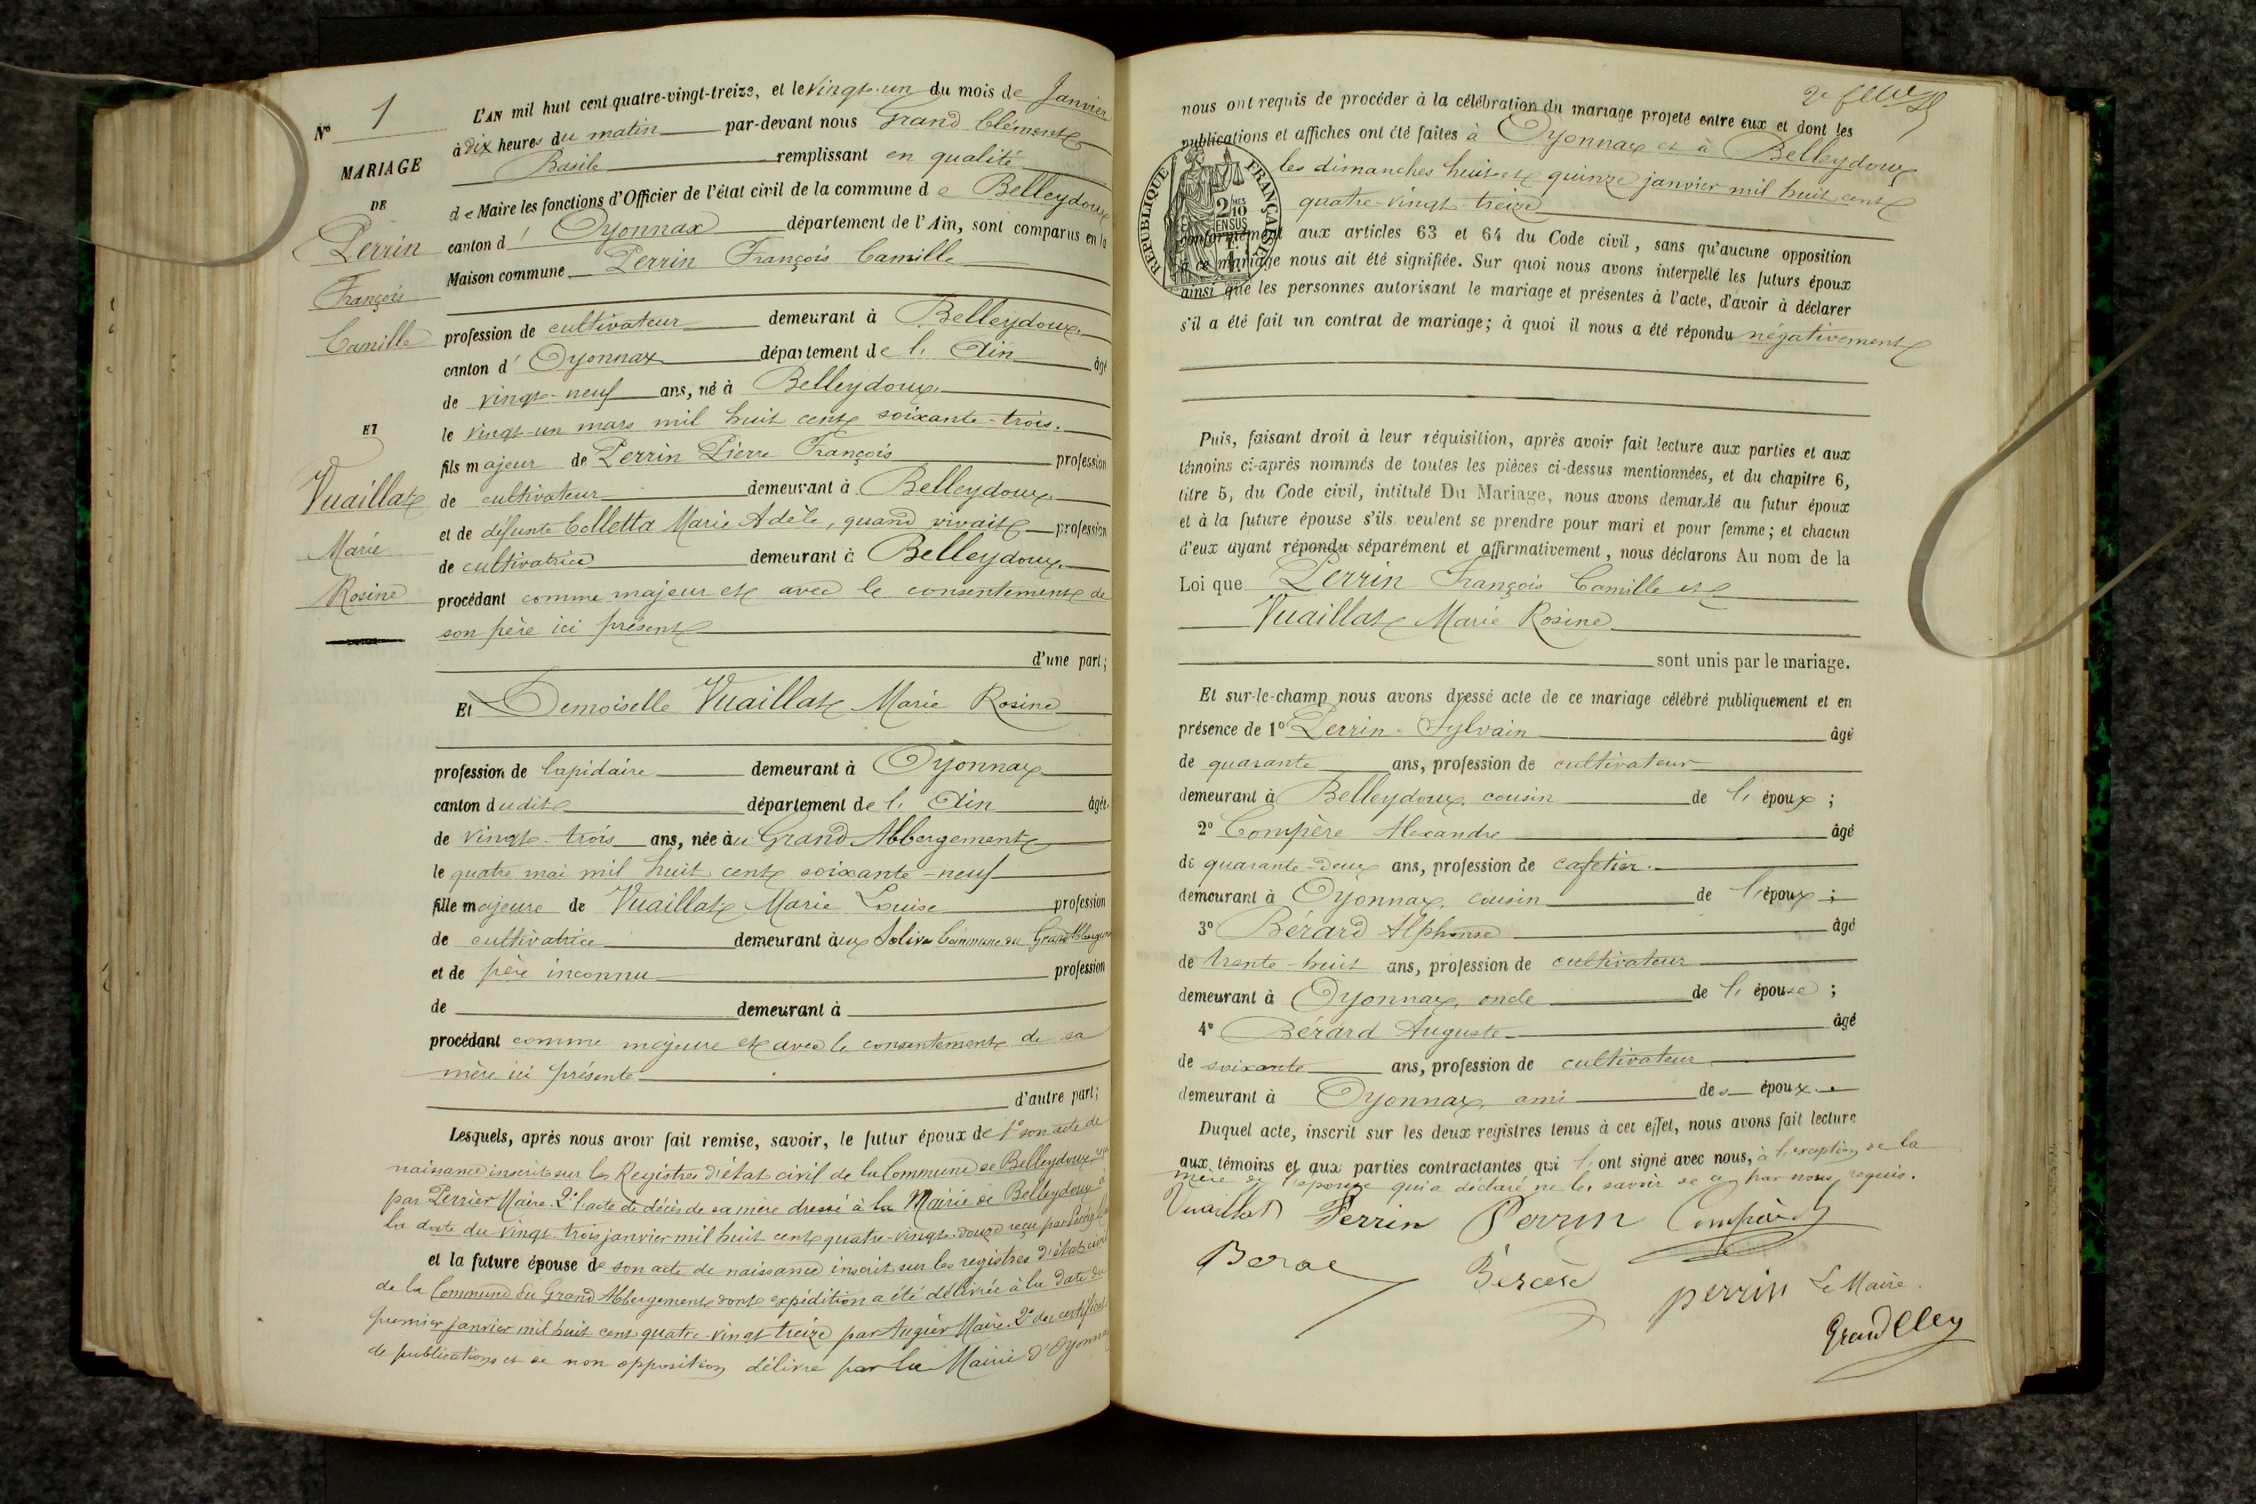 N° 1
MARIAGE
DE
Perrin
François
Camille
ET
Vuaillat
Marie
Rosine
L'AN mil huit cent quatre-vingt-treize, et le Vingt-un du mois de Janvier
à dix heures du matin par-devant nous Grand Clément
Basile remplissant en qualité
de Maire les fonctions d'Officier de l'état civil de la commune de Belleydoux
canton d' Oyonnax département de l'Ain, sont comparus en la
Maison commune Perrin François Camille
profession de cultivateur demeurant à Belleydoux
canton d' Oyonnax département de l'Ain âgé
de vingt-neuf ans, né à Belleydoux
le vingt-un mars mil huit cent soixante-trois.
fils majeur de Perrin Pierre François profession
de cultivateur demeurant à Belleydoux
et de défunte Colletta Marie Adèle, quand vivait profession
de cultivatrice demeurant à Belleydoux
procédant comme majeur et avec le consentement de
son père ici présent
d'une part;
Et Demoiselle Vuaillat Marie Rosine
profession de lapidaire demeurant à Oyonnax
canton dudit département de l'Ain âgée
de vingt-trois ans, née au Grand Abbergement
le quatre mai mil huit cent soixante-neuf
fille majeure de Vuaillat Marie Louise profession
de cultivatrice demeurant aux Solives Commune du Grand Abbergement
et de père inconnu profession
de demeurant à
procédant comme majeure et avec le consentement de sa
mère ici présente
d'autre part;
Lesquels, après nous avoir fait remise, savoir, le futur époux de 1° son acte de
naissance inscrit sur les Registres d'état civil de la Commune de Belleydoux
par Perrier Maire. 2° l'acte de décès de sa mère dressé à la Mairie de Belleydoux à
la date du vingt-trois janvier mil huit cent quatre-vingt-douze reçu par
et la future épouse de son acte de naissance inscrit sur les registres d'état civil
de la Commune du Grand Abbergement dont expédition a été délivrée à la date du
premier janvier mil huit cent quatre-vingt treize par Augier Maire. 2° des certificats
de publications et de non opposition délivré par la Mairie d'Oyonnax
nous ont requis de procéder à la célébration du mariage projeté entre eux et dont les
publications et affiches ont été faites à Oyonnax et à Belleydoux
les dimanches huit et quinze janvier mil huit cent
quatre-vingt-treize
RÉPUBLIQUE FRANÇAISE
2 MES
10
EN SUS
conformément aux articles 63 et 64 du Code civil, sans qu'aucune opposition
à ce mariage nous ait été signifiée. Sur quoi nous avons interpellé les futurs époux
ainsi que les personnes autorisant le mariage et présentes à l'acte, d'avoir à déclarer
s'il a été fait un contrat de mariage; à quoi il nous a été répondu négativement
Puis, faisant droit à leur réquisition, après avoir fait lecture aux parties et aux
témoins ci-après nommés de toutes les pièces ci-dessus mentionnées, et du chapitre 6,
titre 5, du Code civil, intitulé Du Mariage, nous avons demandé au futur époux
et à la future épouse s'ils veulent se prendre pour mari et pour femme; et chacun
d'eux ayant répondu séparément et affirmativement, nous déclarons Au nom de la
Loi que Perrin François Camille et
Vuaillat Marie Rosine
sont unis par le mariage.
Et sur-le-champ nous avons dressé acte de ce mariage célébré publiquement et en
présence de 1° Perrin Sylvain âgé
de quarante ans, profession de cultivateur
demeurant à Belleydoux, cousin de l'époux;
2° Compère Alexandre âgé
de quarante-deux ans, profession de cafetier
demeurant à Oyonnax, cousin de l'époux;
3° Bérard Alphonse âgé
de trente-huit ans, profession de cultivateur
demeurant à Oyonnax, oncle de l'épouse;
4° Bérard Auguste âgé
de soixante ans, profession de cultivateur
demeurant à Oyonnax, ami des époux.
Duquel acte, inscrit sur les deux registres tenus à cet effet, nous avons fait lecture
aux témoins et aux parties contractantes qui l'ont signé avec nous, à l'exception de la
mère de l'épouse qui a déclaré ne le savoir de ce par nous requis.
Vuaillat Perrin Perrin Compère
perrin Le Maire